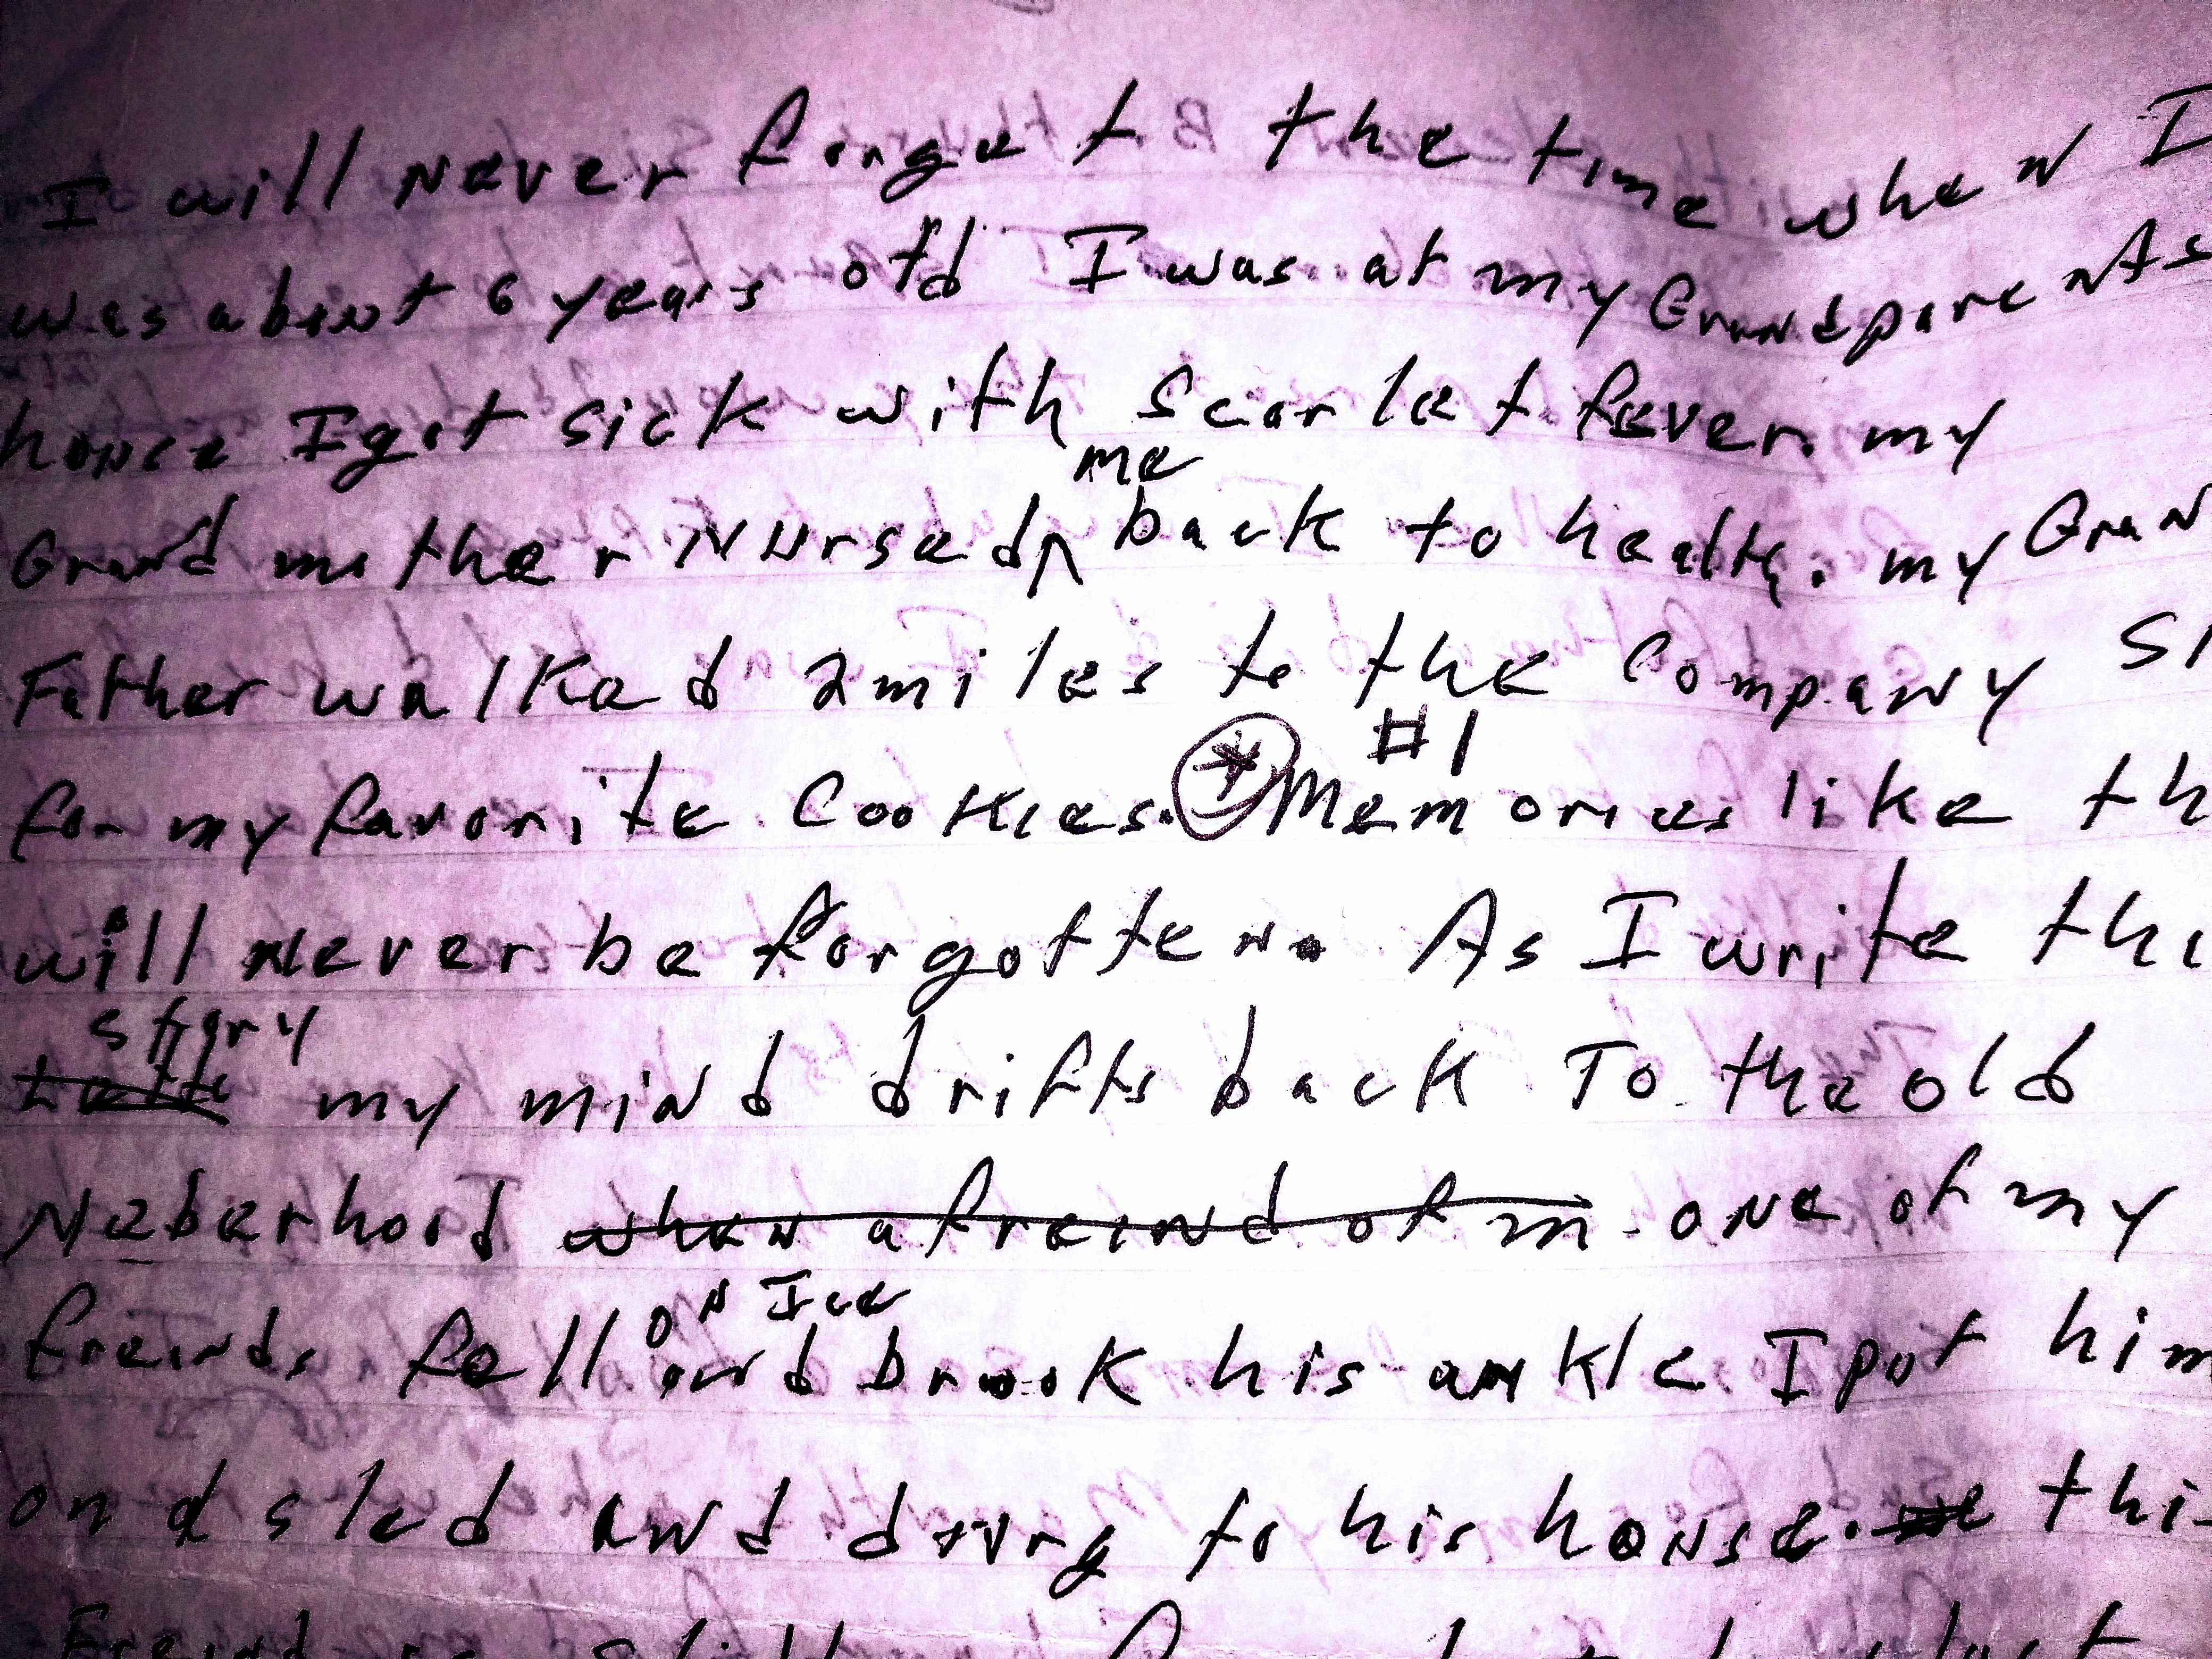 I will never forget the time when I
was about 6 years old I was at my Grandparents
house I got sick with Scarlet fever. my
me
Grand mother Nursed ^ back to health. my Gran
Father walked 2 miles to the Company St
#1
for my favorite Cookies. * Memories like th
will never be forgotten. As I write thi
story
my mind drifts back To the old
Neberhood when a freind of m one of my
on Ice
freinds fell and brook his ankle I put him
on a sled and drug to his house. thi
Freind